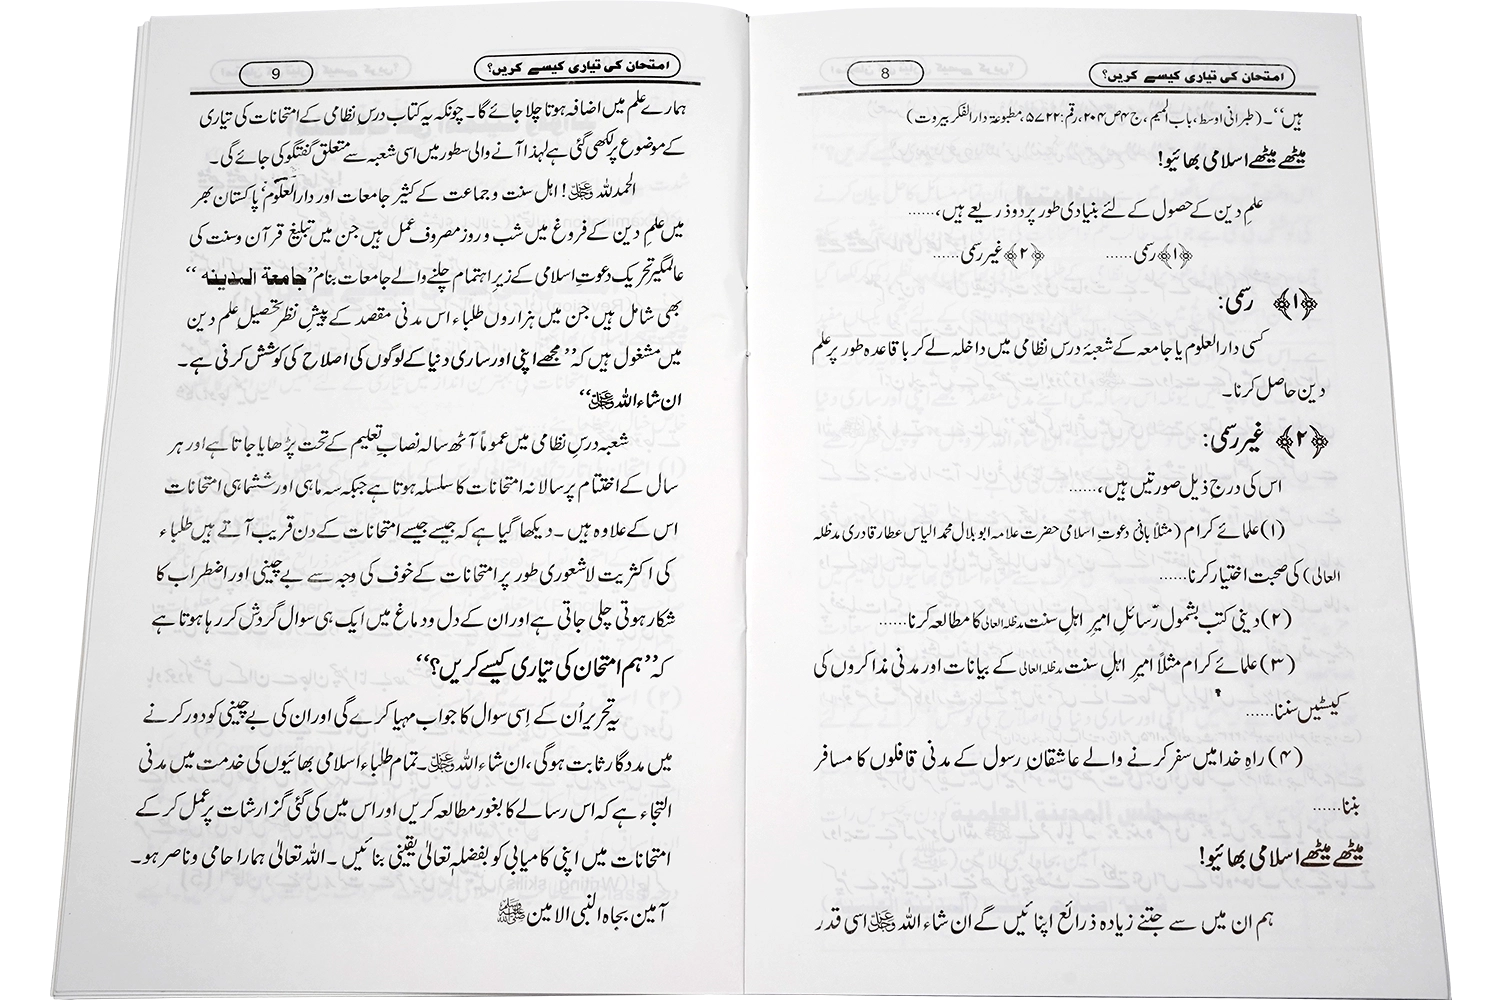 امتحان کی تیاری کیسے کریں؟
8
ہیں‘‘۔ (طبرانی اوسط، باب المیم، ج۴ص۲۰۴، رقم:۵۷۲۲، مطبوعۃ دارالفکر بیروت)
میٹھے میٹھے اسلامی بھائیو!
علمِ دین کے حصول کے لئے بنیادی طور پر دو ذریعے ہیں،......
﴿۱﴾ رسمی...... ﴿۲﴾ غیر رسمی......
﴿۱﴾ رسمی:
کسی دارالعلوم یا جامعہ کے شعبۂ درسِ نظامی میں داخلہ لے کر باقاعدہ طور پر علم
دین حاصل کرنا۔
﴿۲﴾ غیر رسمی:
اس کی درج ذیل صورتیں ہیں،......
(۱) علمائے کرام (مثلاً بانی دعوتِ اسلامی حضرت علامہ ابوبلال محمد الیاس عطار قادری مدظلہ
العالی) کی صحبت اختیار کرنا......
(۲) دینی کتب بشمول رسائلِ امیرِ اہلِ سنت مدظلہ العالی کا مطالعہ کرنا......
(۳) علمائے کرام مثلاً امیرِ اہلِ سنت مدظلہ العالی کے بیانات اور مدنی مذاکروں کی
کیسٹیں سننا......
(۴) راہِ خدا میں سفر کرنے والے عاشقانِ رسول کے مدنی قافلوں کا مسافر
بننا......
میٹھے میٹھے اسلامی بھائیو!
ہم ان میں سے جتنے زیادہ ذرائع اپنائیں گے ان شاء اللہ عزوجل اسی قدر
امتحان کی تیاری کیسے کریں؟
9
ہمارے علم میں اضافہ ہوتا چلا جائے گا۔ چونکہ یہ کتاب درس نظامی کے امتحانات کی تیاری
کے موضوع پر لکھی گئی ہے لہذا آنے والی سطور میں اسی شعبہ سے متعلق گفتگو کی جائے گی۔
الحمدللہ عزوجل! اہل سنت و جماعت کے کثیر جامعات اور دارالعلوم پاکستان بھر
میں علمِ دین کے فروغ میں شب و روز مصروف عمل ہیں جن میں تبلیغِ قرآن وسنت کی
عالمگیر تحریک دعوتِ اسلامی کے زیرِ اہتمام چلنے والے جامعات بنام ’’جامعة المدینه‘‘
بھی شامل ہیں جن میں ہزاروں طلباء اس مدنی مقصد کے پیشِ نظر تحصیلِ علم دین
میں مشغول ہیں کہ ’’مجھے اپنی اور ساری دنیا کے لوگوں کی اصلاح کی کوشش کرنی ہے۔
ان شاء اللہ عزوجل‘‘
شعبہ درسِ نظامی میں عموماً آٹھ سالہ نصابِ تعلیم کے تحت پڑھایا جاتا ہے اور ہر
سال کے اختتام پر سالانہ امتحانات کا سلسلہ ہوتا ہے جبکہ سہ ماہی اور ششماہی امتحانات
اس کے علاوہ ہیں۔ دیکھا گیا ہے کہ جیسے جیسے امتحانات کے دن قریب آتے ہیں طلباء
کی اکثریت لاشعوری طور پر امتحانات کے خوف کی وجہ سے بے چینی اور اضطراب کا
شکار ہوتی چلی جاتی ہے اور ان کے دل ودماغ میں ایک ہی سوال گردش کر رہا ہوتا ہے
کہ ’’ہم امتحان کی تیاری کیسے کریں؟‘‘
یہ تحریر اُن کے اِسی سوال کا جواب مہیا کرے گی اور ان کی بے چینی کو دور کرنے
میں مددگار ثابت ہوگی، ان شاء اللہ عزوجل۔ تمام طلباء اسلامی بھائیوں کی خدمت میں مدنی
التجاء ہے کہ اس رسالے کا بغور مطالعہ کریں اور اس میں کی گئی گزارشات پر عمل کر کے
امتحانات میں اپنی کامیابی کو بفضلہٖ تعالیٰ یقینی بنائیں۔ اللہ تعالیٰ ہمارا حامی وناصر ہو۔
آمین بجاہ النبی الامین ﷺ